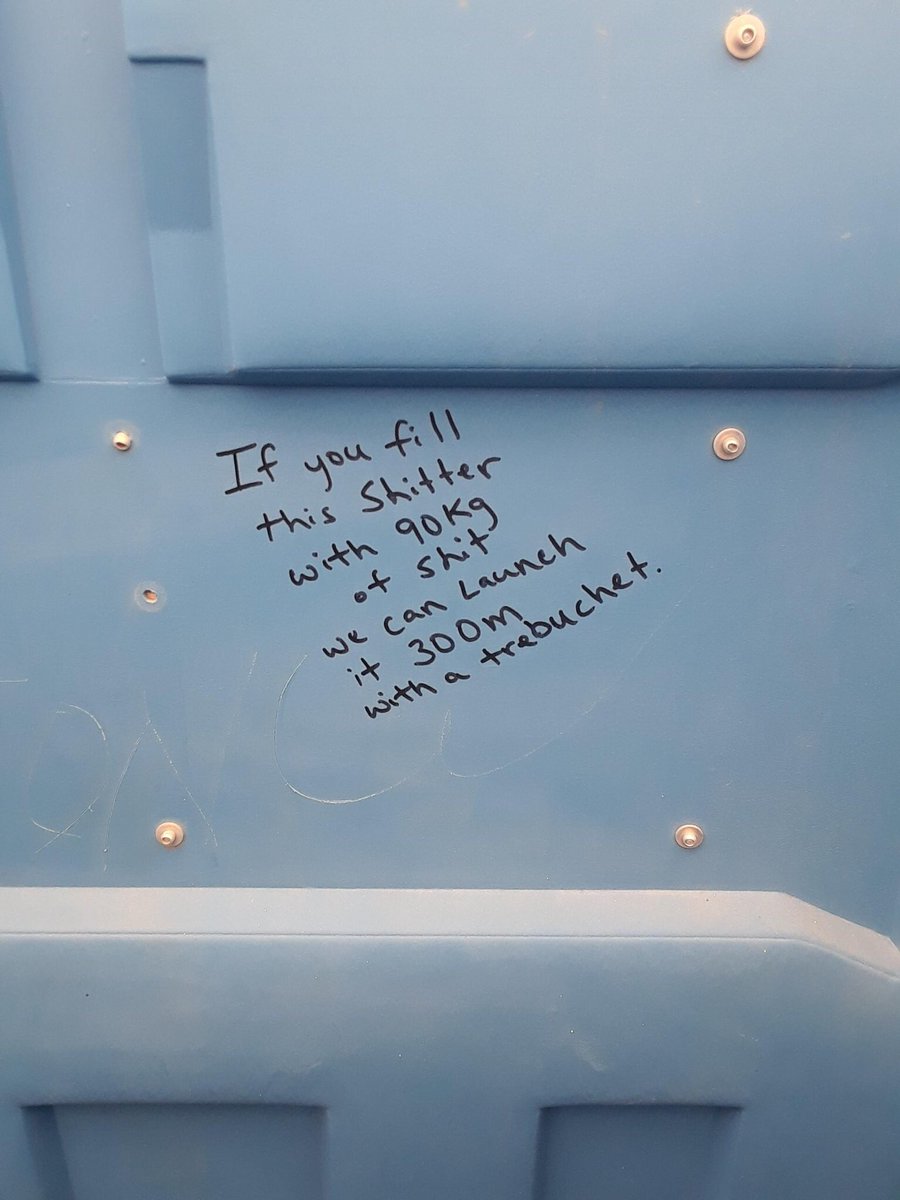 If you fill
this Shitter
with 90Kg
of shit
we can Launch
it 300m
with a trebuchet.